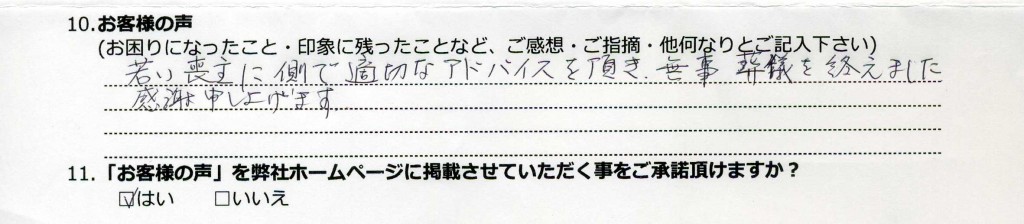 10.お客様の声
(お困りになったこと・印象に残ったことなど、ご感想・ご指摘・他何なりとご記入下さい)
若い喪主に側で適切なアドバイスを頂き、無事葬儀を終えました
感謝申し上げます
11.「お客様の声」を弊社ホームページに掲載させていただく事をご承諾頂けますか？
☑はい　□いいえ